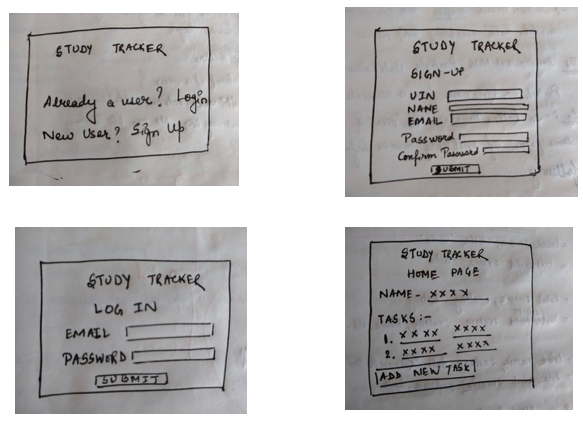 STUDY TRACKER
Already a user? Login
New User? Sign Up
STUDY TRACKER
SIGN-UP
UIN
NAME
EMAIL
Password
Confirm Password
SUBMIT
STUDY TRACKER
LOG IN
EMAIL
PASSWORD
SUBMIT
STUDY TRACKER
HOME PAGE
NAME- XXXX
TASKS:-
1. XXXX XXXX
2. XXXX XXXX
ADD NEW TASK